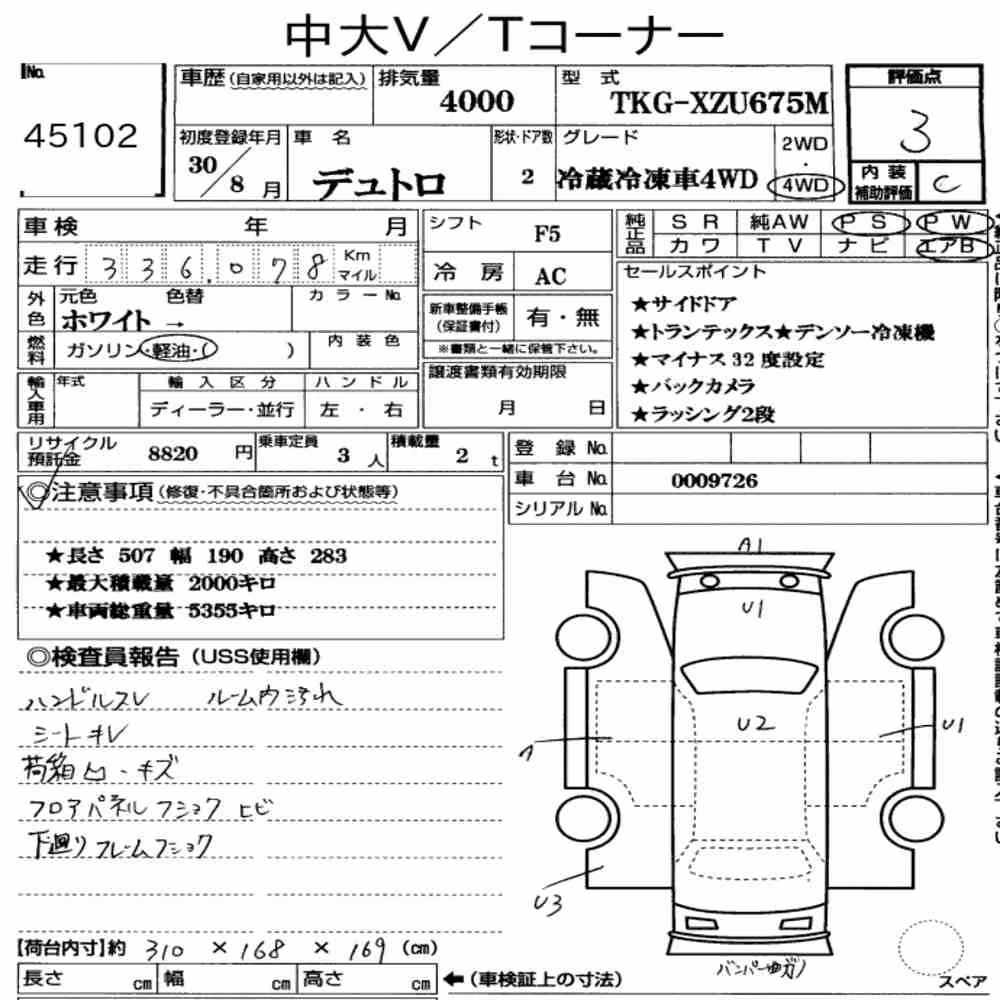 中大V／Tコーナー
No.
45102
車歴(自家用以外は記入)
排気量
4000
型 式
TKG-XZU675M
評価点
3
初度登録年月
30／8月
車 名
デュトロ
形状・ドア数
2
グレード
冷蔵冷凍車4WD
2WD
・
4WD
内 装
補助評価
C
車検 年 月
走行 336,078 Km
マイル
シフト F5
冷 房 AC
純正品
SR 純AW PS PW
カワ TV ナビ エアB
外色
元色 色替
ホワイト →
カラーNo.
燃料
ガソリン・軽油・( )
内装色
新車整備手帳
(保証書付)
有・無
※書類と一緒に保管下さい。
セールスポイント
★サイドドア
★トランテックス★デンソー冷凍機
★マイナス32度設定
★バックカメラ
★ラッシング2段
輸入車用
年式
輸入区分
ディーラー・並行
ハンドル
左・右
譲渡書類有効期限
月 日
リサイクル
預託金
8820 円
乗車定員
3 人
積載量
2 t
登 録 No.
車 台 No. 0009726
シリアル No.
◎注意事項(修復・不具合箇所および状態等)
★長さ 507 幅 190 高さ 283
★最大積載量 2000キロ
★車両総重量 5355キロ
◎検査員報告(USS使用欄)
ハンドルスレ ルーム内汚れ
シートキレ
荷箱凸・キズ
フロアパネルフショク ヒビ
下廻りフレームフショク
A1
U1
U2
U1
U3
バンパーユガ
スペア
【荷台内寸】約 310 × 168 × 169 (cm)
長さ cm 幅 cm 高さ cm ←(車検証上の寸法)